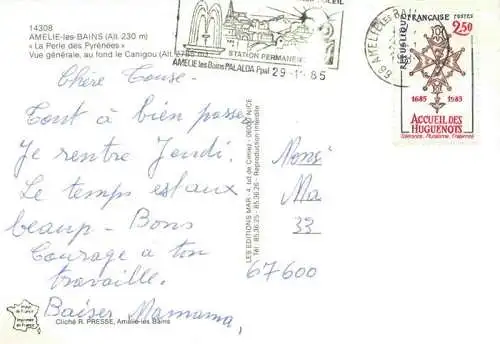 14308
AMELIE-les-BAINS (Alt. 230 m)
« La Perle des Pyrénées »
Vue générale, au fond le Canigou (Alt. 2785 m)
SOLEIL
STATION PERMANENTE
AMELIE les Bains PALALDA Ppal 29-11-85
Chère Touse.
Tout à bien passer
Je rentre Jeudi.
Le temps est aux
beaup - Bons
Courage a ton
travaille.
Baiser Mamama,
Cliché R. PRESSE, Amélie-les-Bains
LES EDITIONS MAR - 4, bd de Cimiez - 06000 NICE
Tél. 85.36.25 - 85.36.26 - Reproduction interdite
66 AMELIE-les-BAINS
REPUBLIQUE FRANÇAISE
POSTES
2,50
1685 1985
ACCUEIL DES
HUGUENOTS
Tolérance, Pluralisme, Fraternité
Monsi
Ma
33
67600